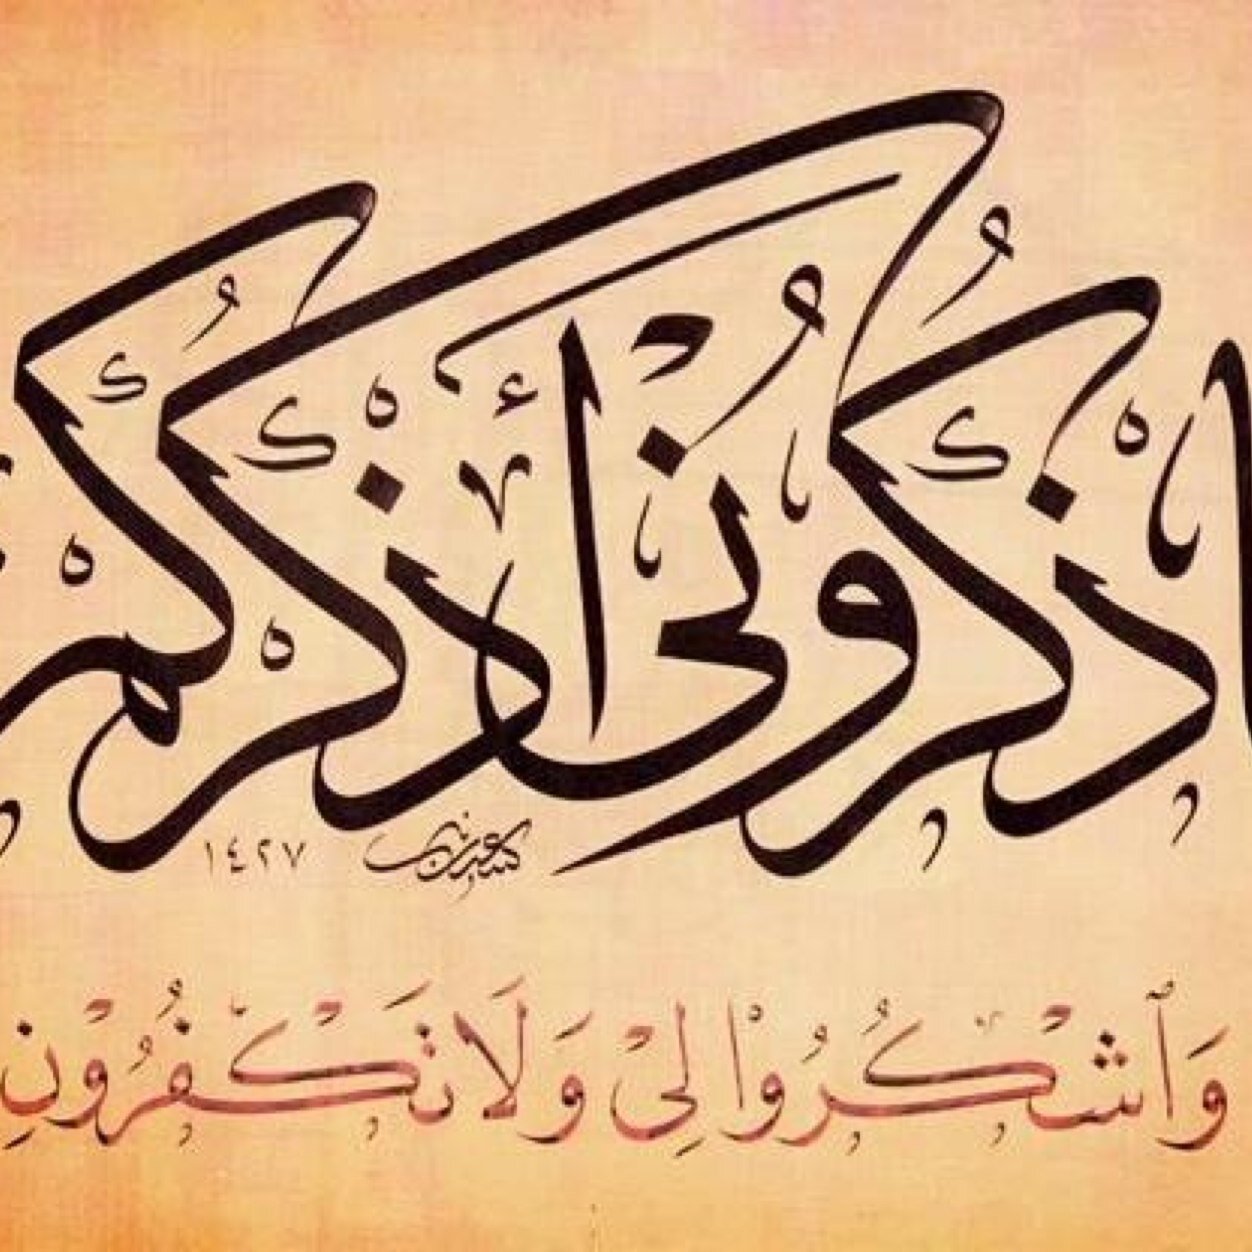 اذكروني أذكركم
١٤٢٧
وَٱشْكُرُوْا لِيْ وَلَا تَكْفُرُوْنِ